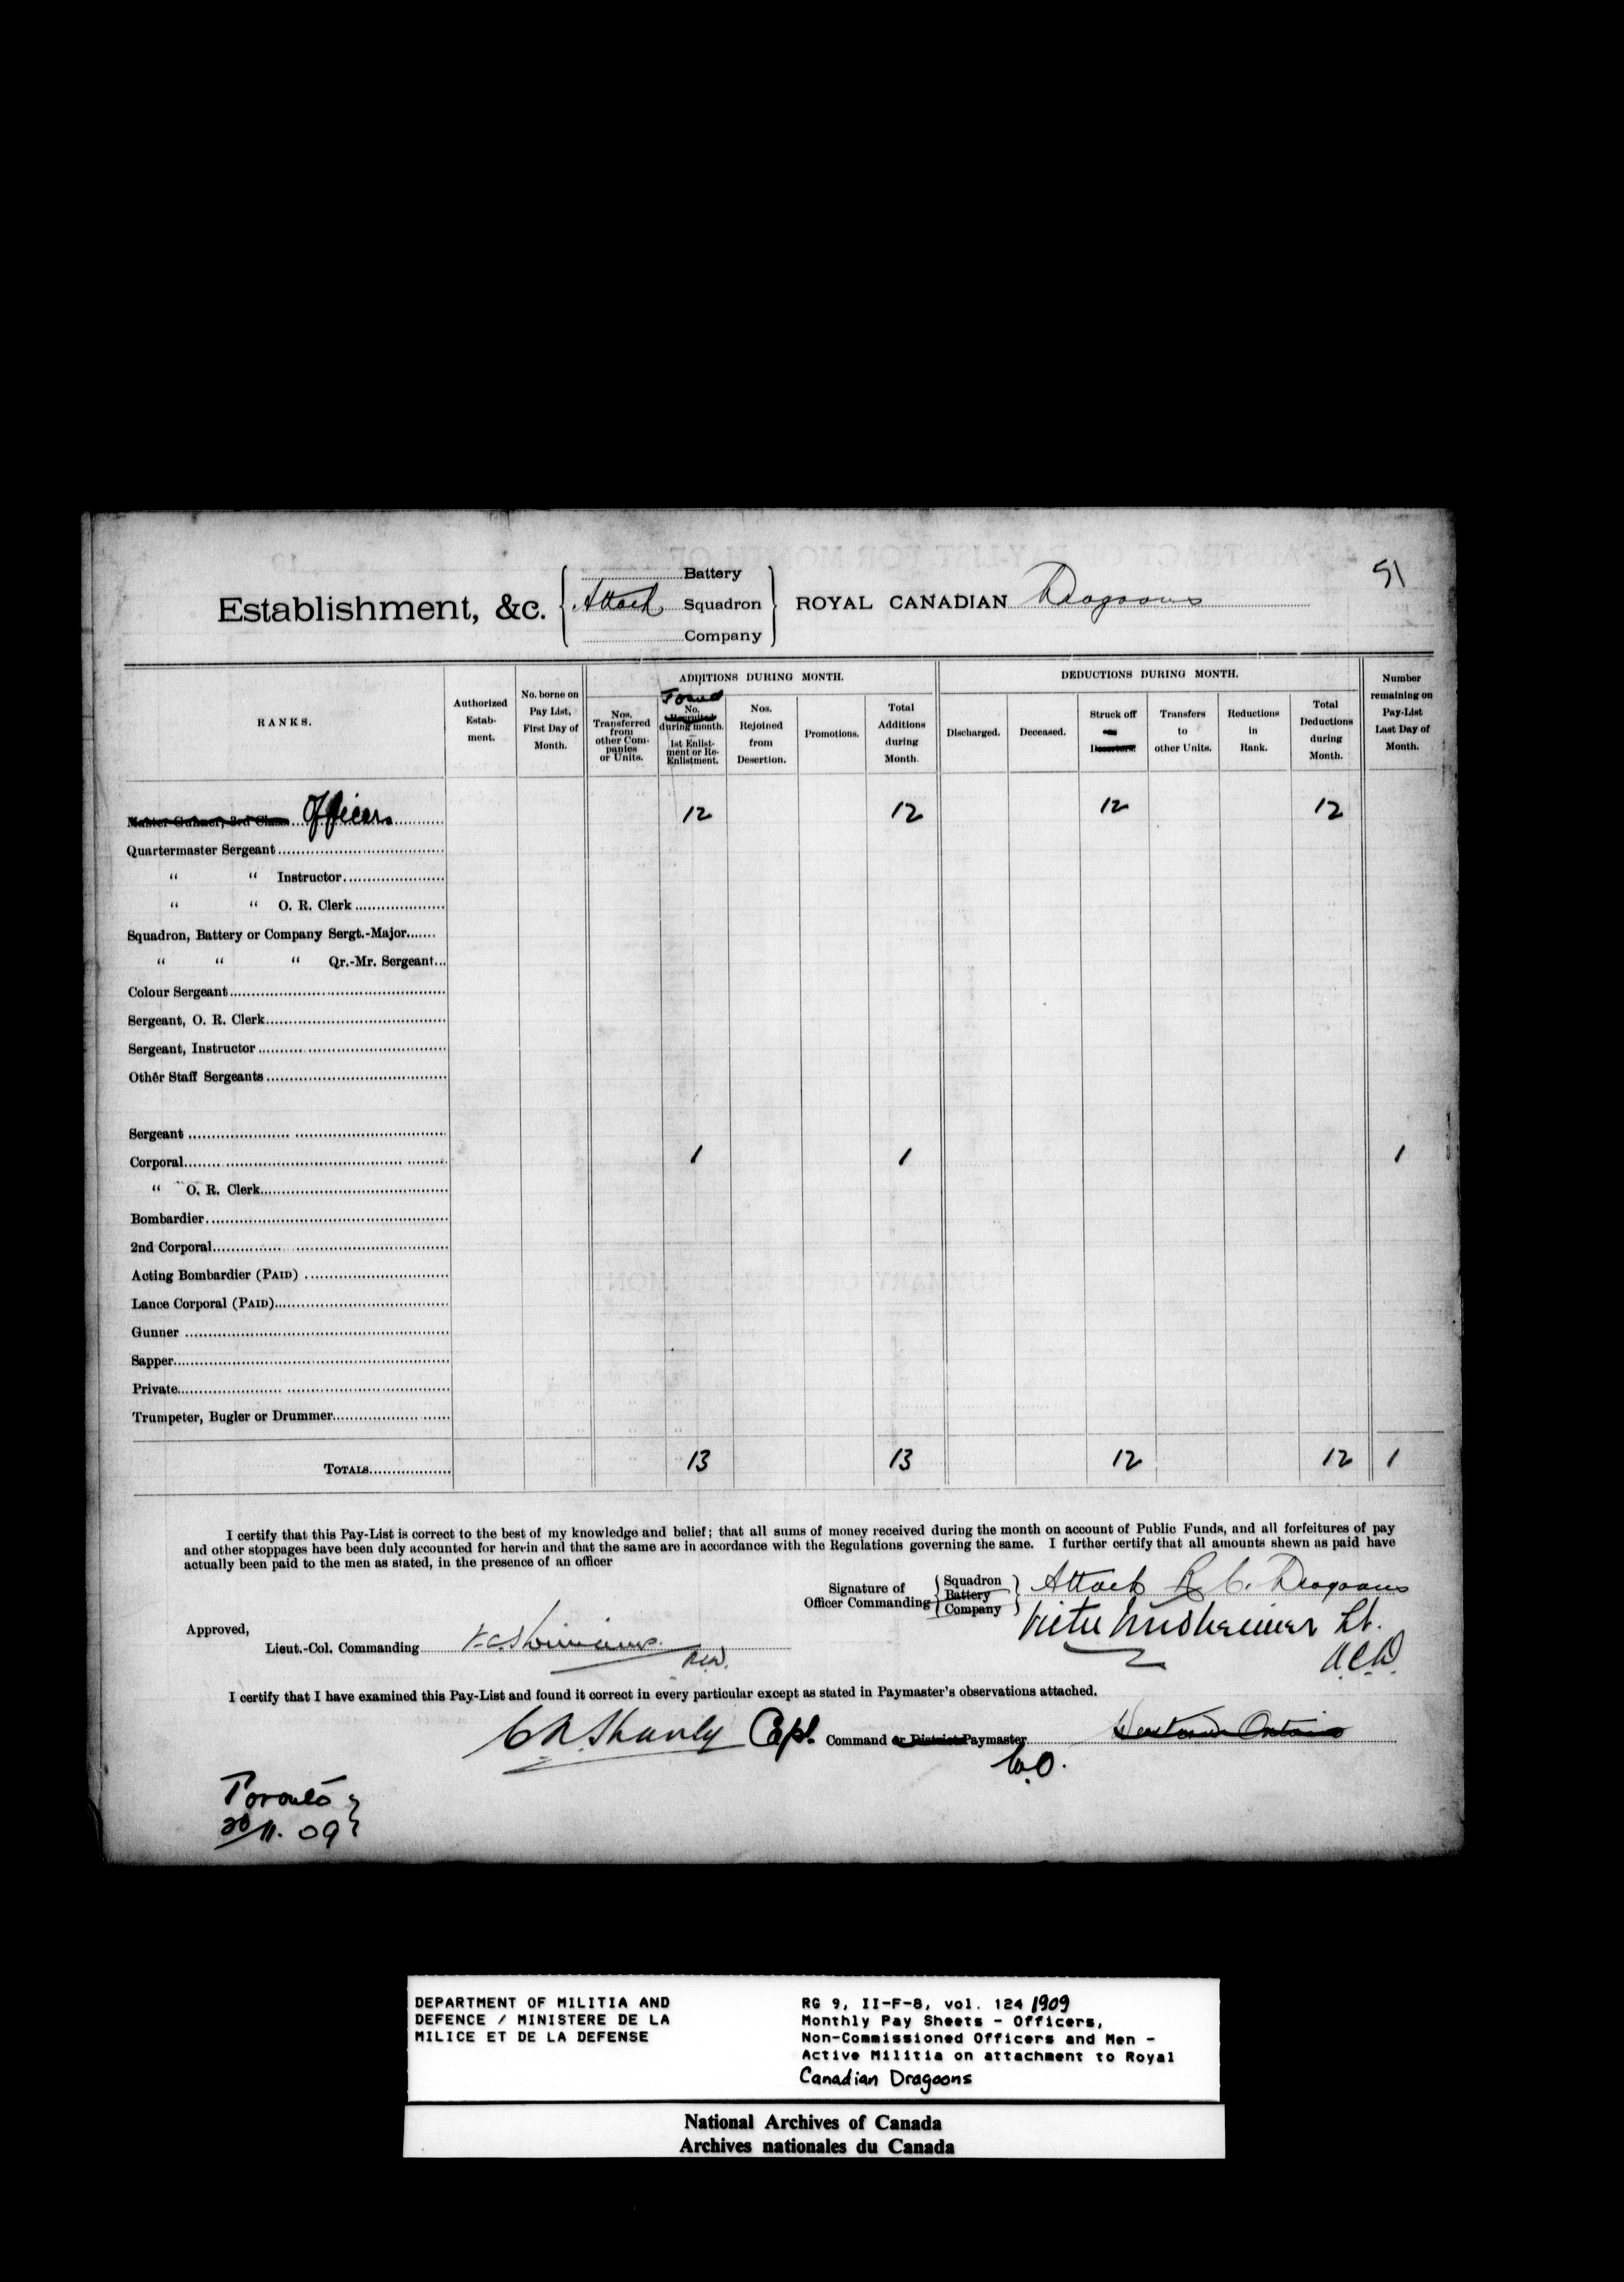 51
Battery
Establishment, &c. Attach Squadron ROYAL CANADIAN Dragoons
Company
RANKS.
Authorized Estab- ment.
No. borne on Pay List, First Day of Month.
ADDITIONS DURING MONTH.
Nos. Transferred from other Com- panies or Units.
Found
No. Recruited during month.
1st Enlist- ment or Re- Enlistment.
Nos. Rejoined from Desertion.
Promotions.
Total Additions during Month.
DEDUCTIONS DURING MONTH.
Discharged.
Deceased.
Struck off as Deserters.
Transfers to other Units.
Reductions in Rank.
Total Deductions during Month.
Number remaining on Pay-List Last Day of Month.
Master Gunner, 3rd Class Officers 12 12 12 12
Quartermaster Sergeant
“ “ Instructor
“ “ O. R. Clerk
Squadron, Battery or Company Sergt.-Major
“ “ “ Qr.-Mr. Sergeant
Colour Sergeant
Sergeant, O. R. Clerk
Sergeant, Instructor
Other Staff Sergeants
Sergeant
Corporal 1 1 1
“ O. R. Clerk
Bombardier
2nd Corporal
Acting Bombardier (PAID)
Lance Corporal (PAID)
Gunner
Sapper
Private
Trumpeter, Bugler or Drummer
TOTALS 13 13 12 12 1
I certify that this Pay-List is correct to the best of my knowledge and belief; that all sums of money received during the month on account of Public Funds, and all forfeitures of pay
and other stoppages have been duly accounted for herein and that the same are in accordance with the Regulations governing the same. I further certify that all amounts shewn as paid have
actually been paid to the men as stated, in the presence of an officer
Signature of Officer Commanding Squadron Battery Company Attach R. C. Dragoons
Lt.
R.C.D.
Approved,
Lieut.-Col. Commanding
I certify that I have examined this Pay-List and found it correct in every particular except as stated in Paymaster's observations attached.
C R Shanly Capt. Command or District Paymaster Western Ontario
W.O.
Toronto
11. 09
DEPARTMENT OF MILITIA AND
DEFENCE / MINISTERE DE LA
MILICE ET DE LA DEFENSE
RG 9, II-F-8, vol. 124 1909
Monthly Pay Sheets - Officers,
Non-Commissioned Officers and Men -
Active Militia on attachment to Royal
Canadian Dragoons
National Archives of Canada
Archives nationales du Canada